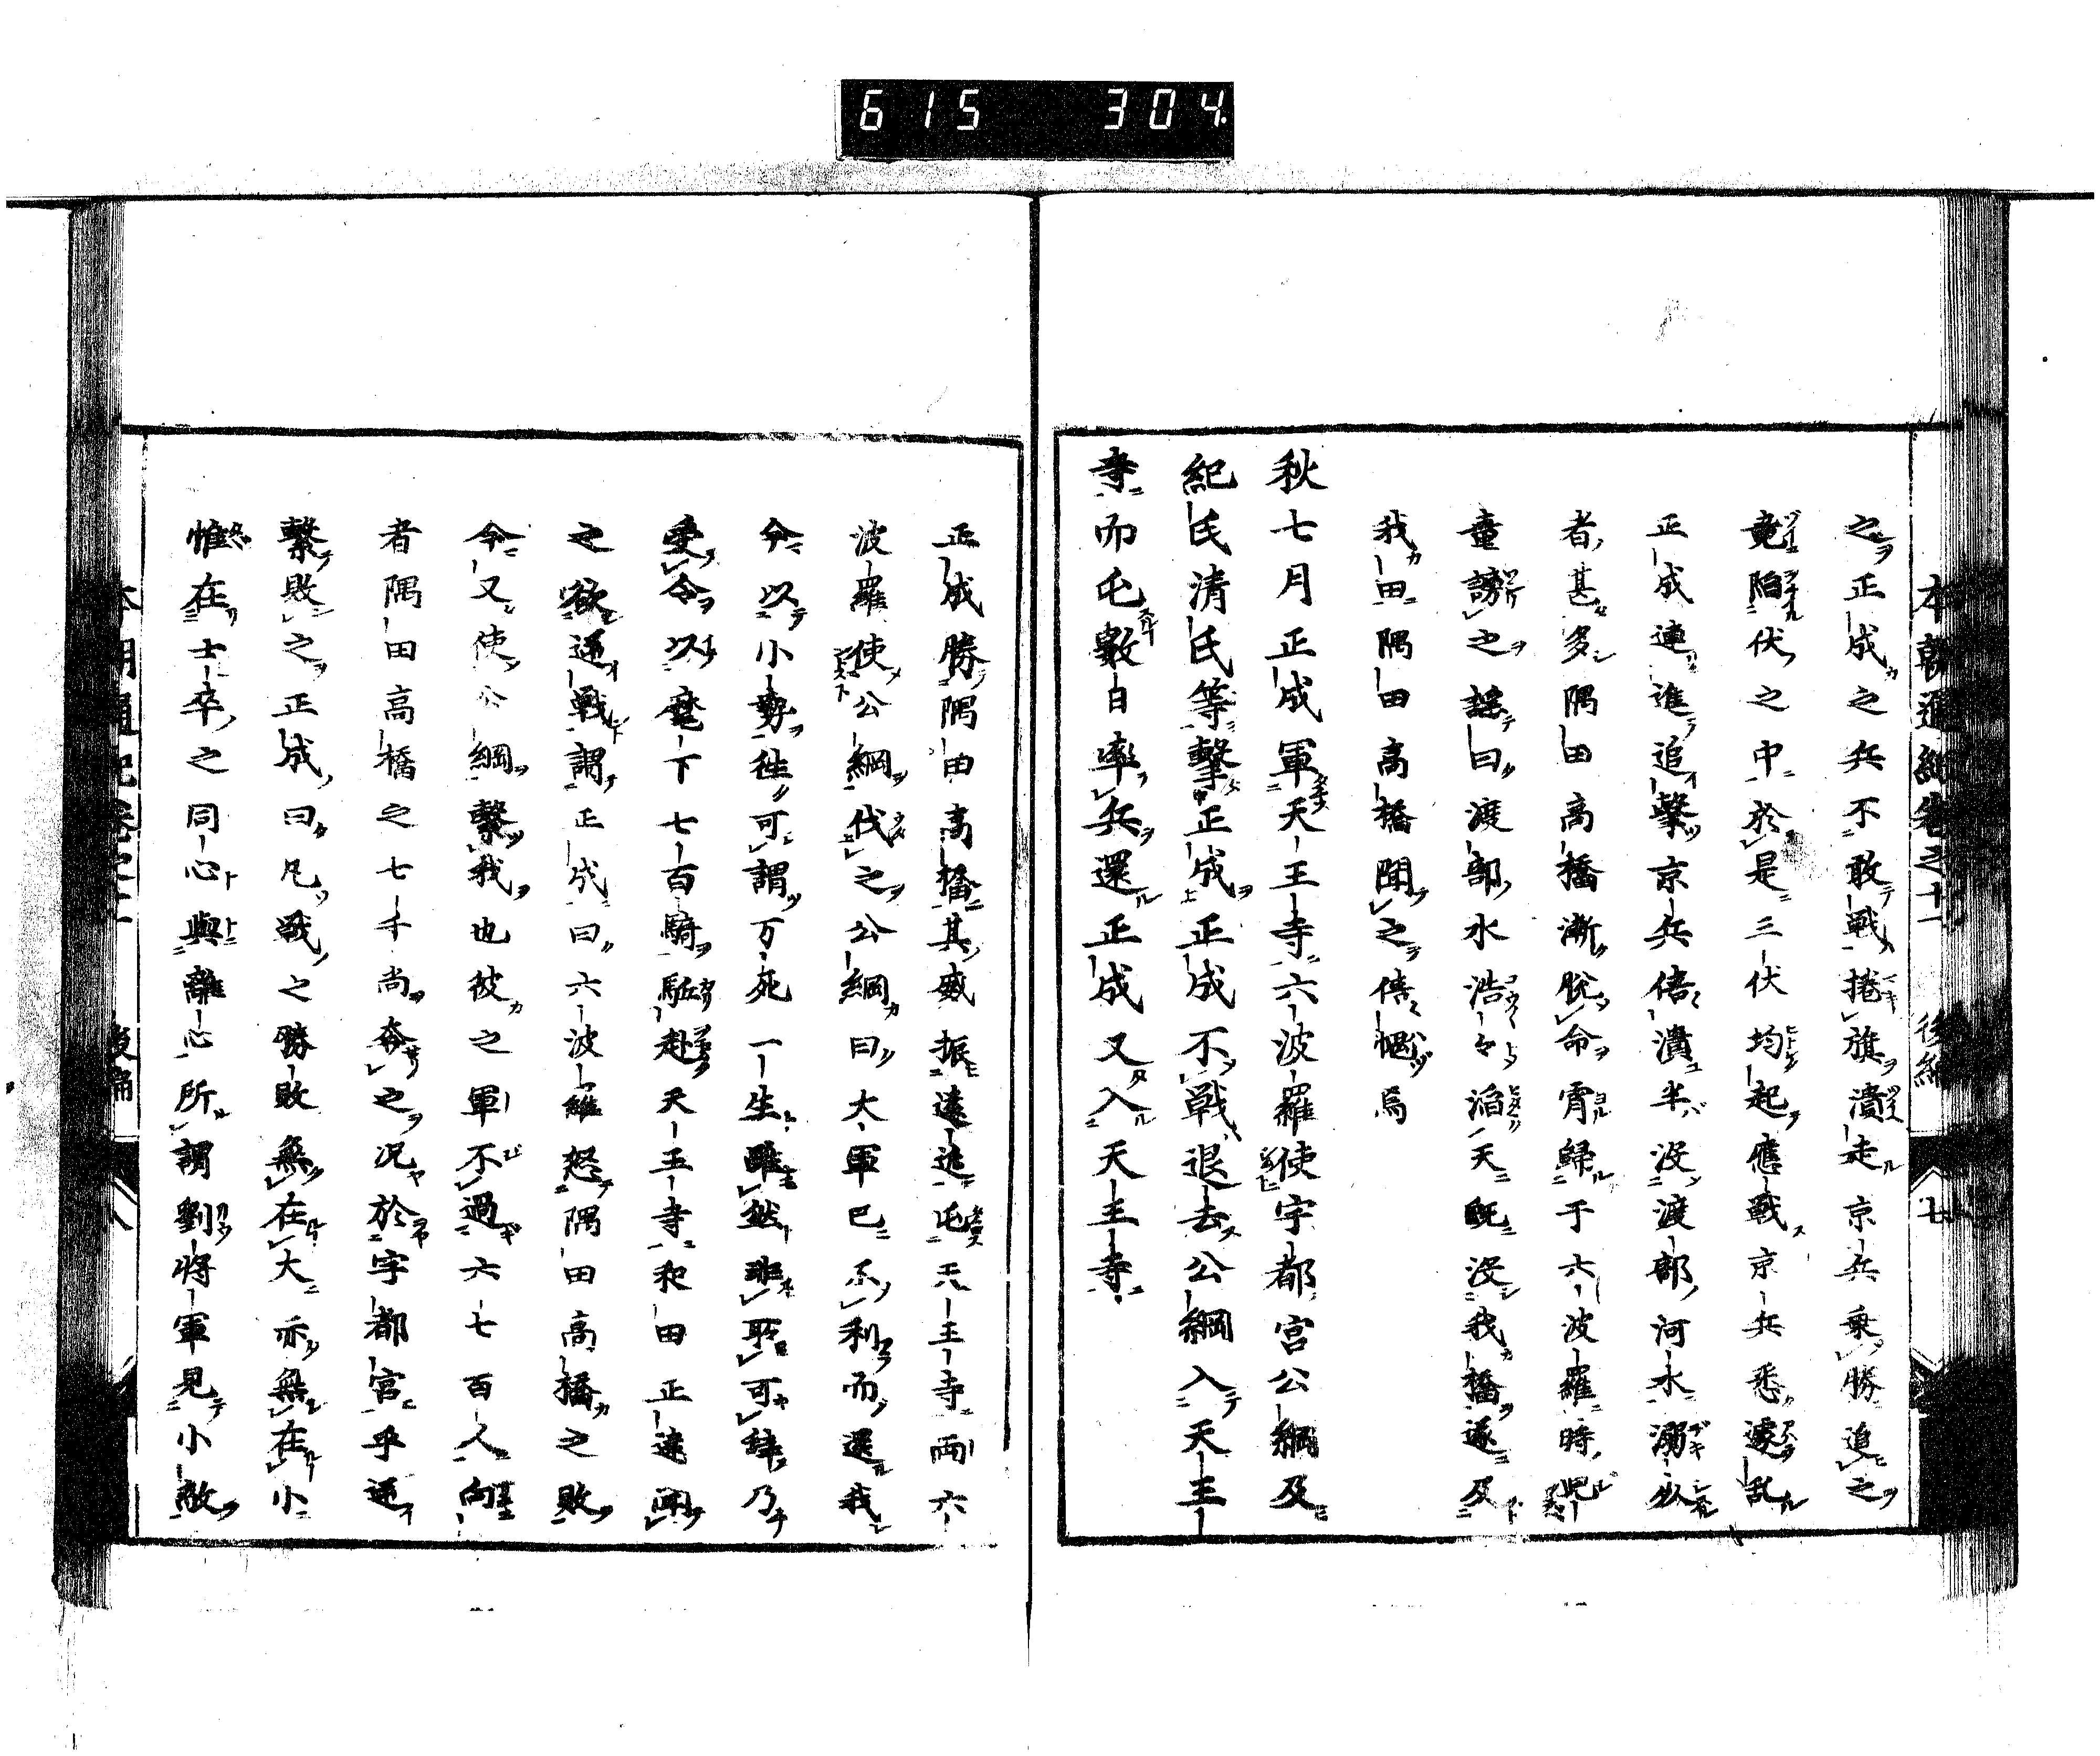 615 304
本朝通紀卷之十一 後編 七
之正成之兵不敢戰捲旗潰走京兵乘勝追之
竟陷伏之中於是三伏均起應戰京兵悉遽乱
正成連進追擊京兵倍潰半沒渡部河水溺死
者甚多隅田高橋漸脫命霄歸于六波羅時兒
童謗之謠曰渡部水浩々滔天既沒我橋遂及
我田隅田高橋聞之倍愧焉
秋七月正成軍天王寺六波羅使宇都宮公綱及
紀氏清氏等擊正成正成不戰退去公綱入天王
寺而屯數日率兵還正成又入天王寺
正成勝隅田高橋其威振遠近屯天王寺両六
波羅使公綱伐之公綱曰大軍已不利而還我
今以小勢徃可謂万死一生雖然非可辞乃
受令以麾下七百騎馳赴天王寺和田正遠聞
之欲逆戰謂正成曰六波羅怒隅田高橋之敗
今又使公綱擊我也彼之軍不過六七百人向
者隅田高橋之七千尚奔之况於宇都宮乎逆
擊敗之正成曰凡戰之勝敗無在大亦無在小
惟在士卒之同心與離心所謂劉將軍見小敵
本朝通紀卷之十一 後編 八